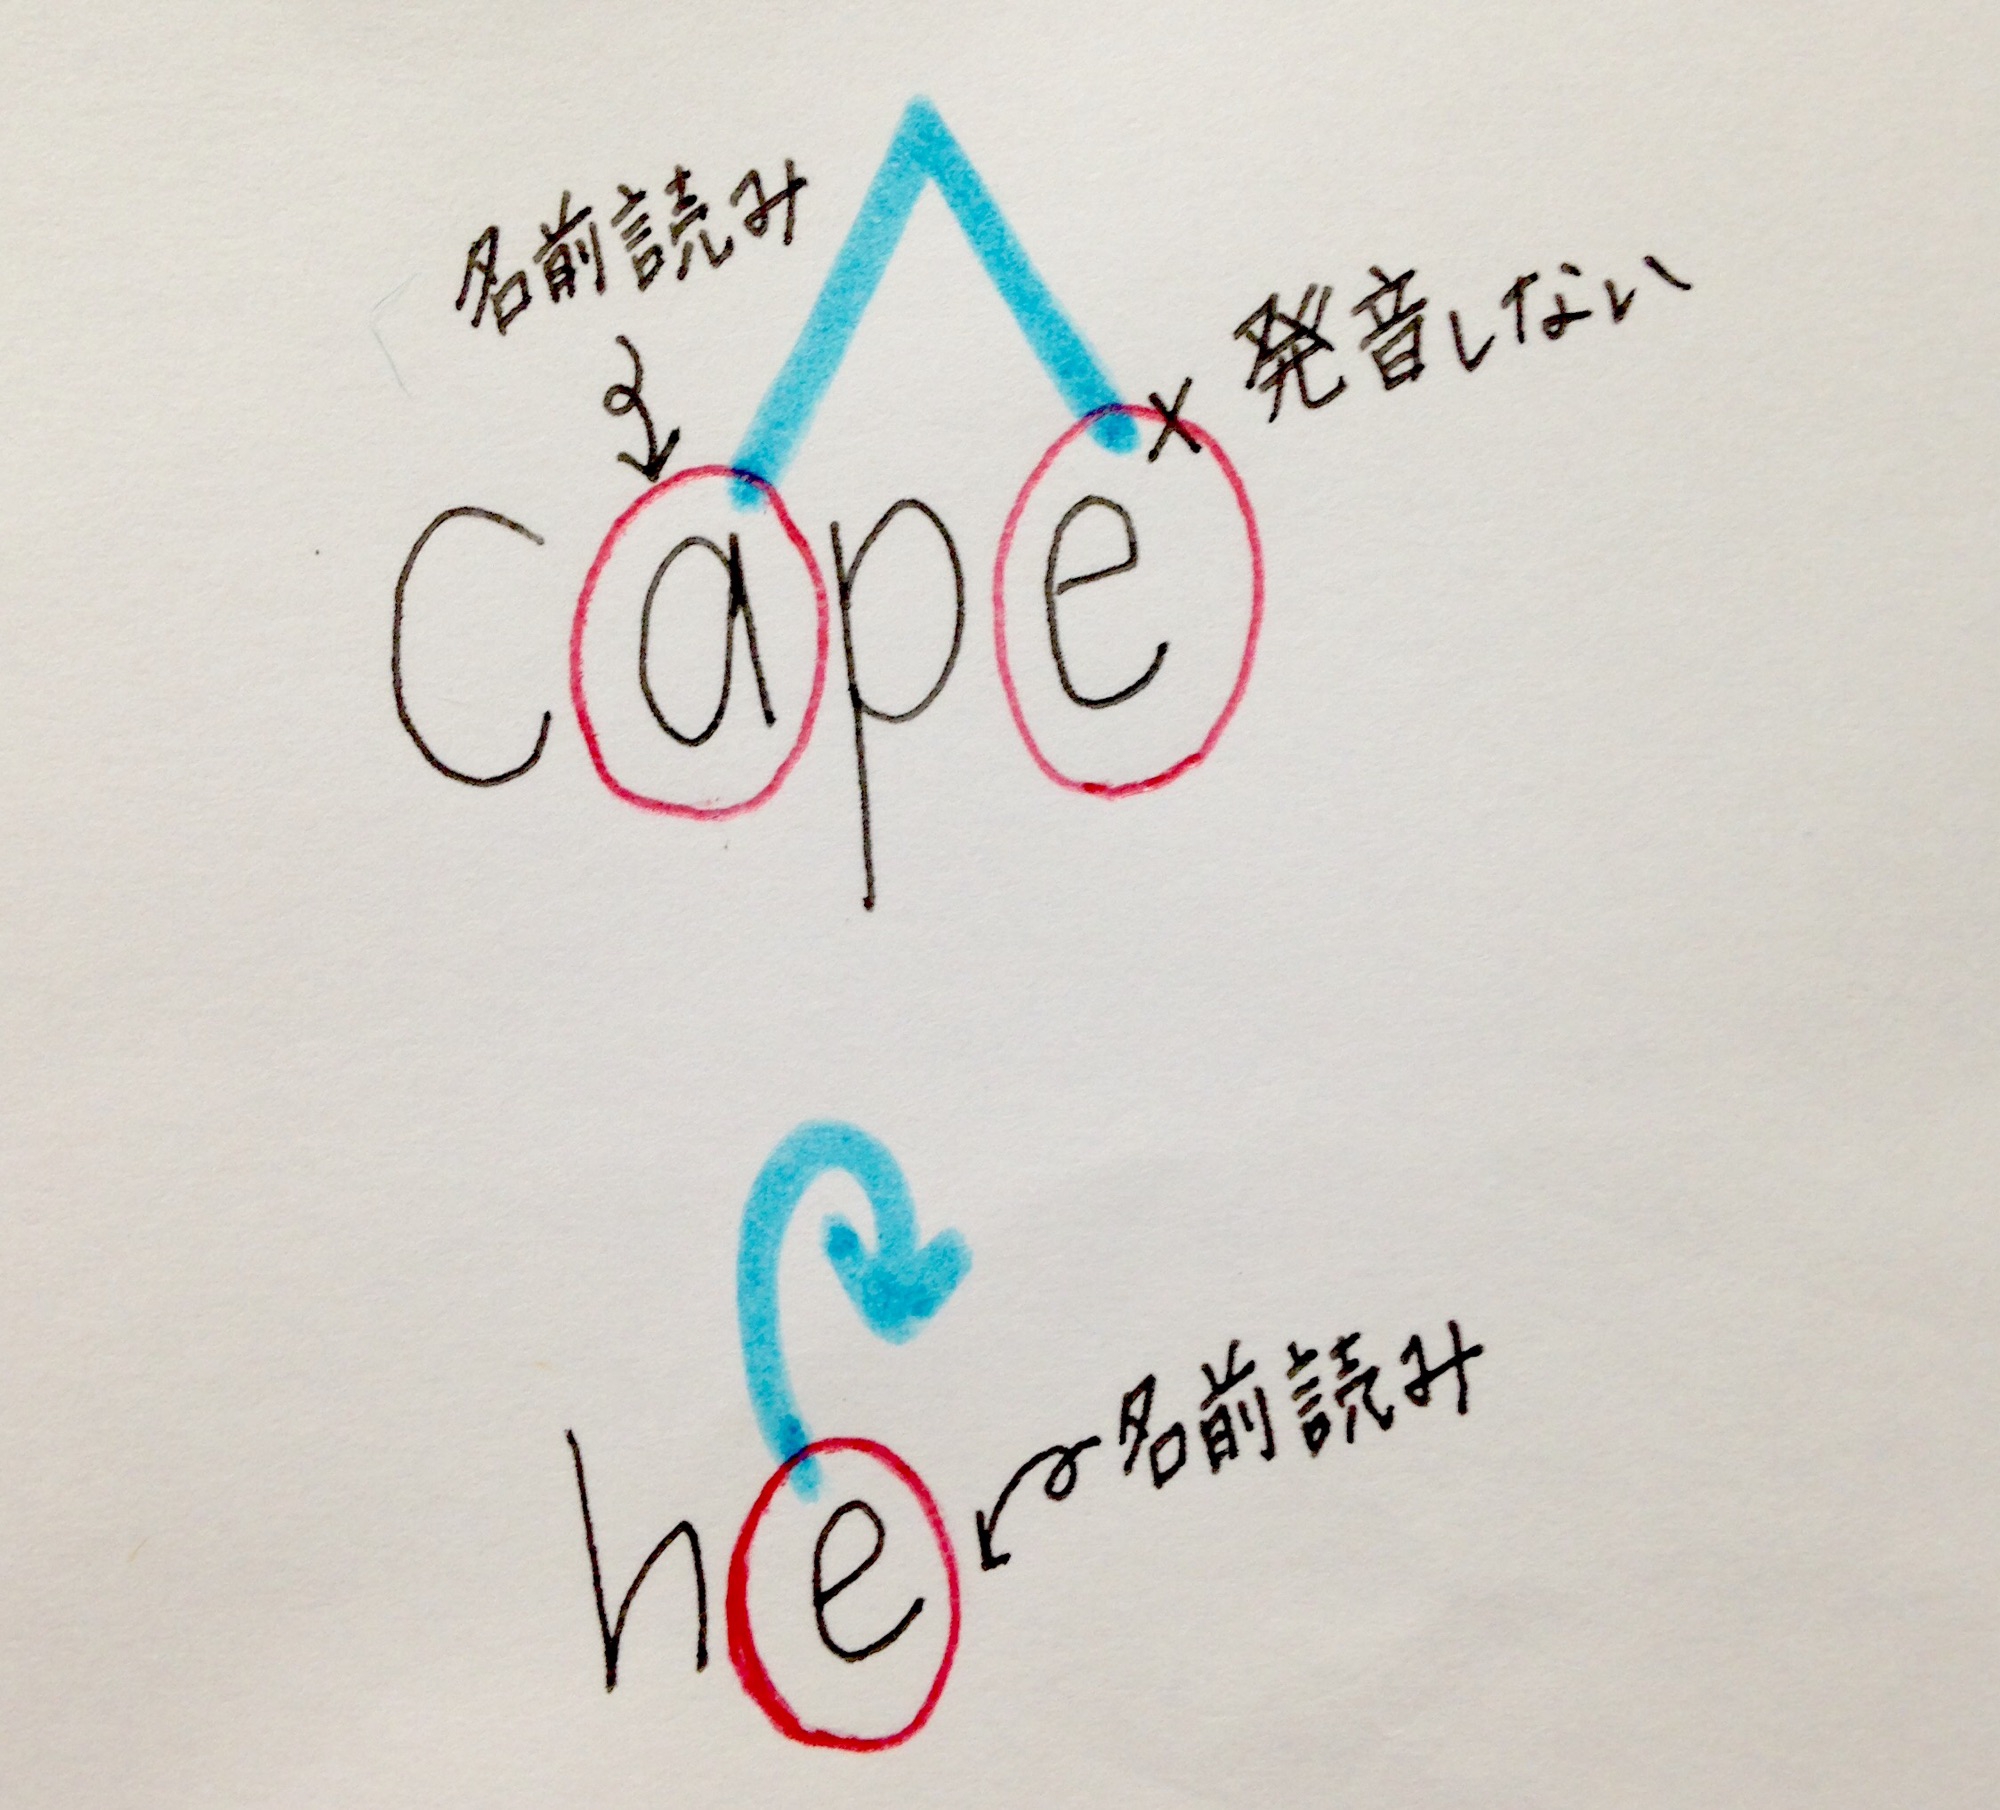 名前読み
× 発音しない
cape
名前読み
he